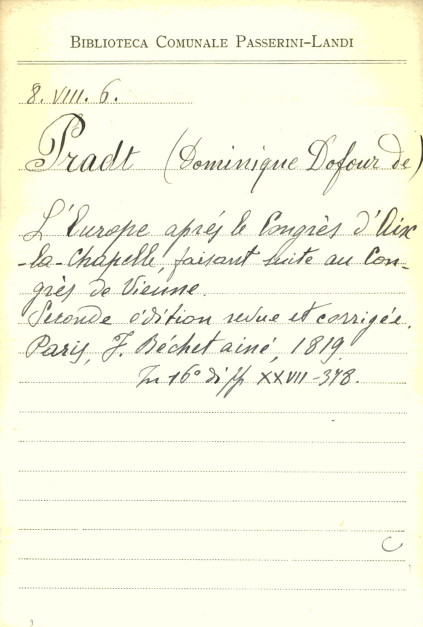 BIBLIOTECA COMUNALE PASSERINI-LANDI
8. VIII. 6.
Pradt (Dominique Dofour de)
L'Europe après le Congrès d'Aix
-la-Chapelle, faisant suite au Con-
grès de Vienne.
Seconde édition revue et corrigée.
Paris, F. Béchet ainé, 1819.
In 16° di pp XXVII-378.
C